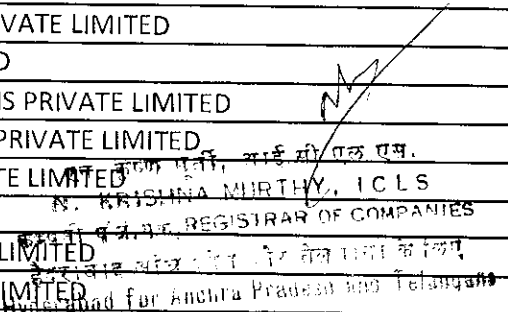 VATE LIMITED
D
IS PRIVATE LIMITED
PRIVATE LIMITED
TE LIMITED
कृष्ण मूर्ती, आई सी एल एस.
N. KRISHNA MURTHY, ICLS
REGISTRAR OF COMPANIES
LIMITED
IMITED
Hyderabad for Andhra Pradesh and Telangana